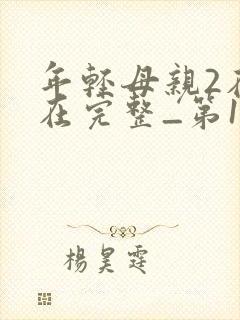 年轻母親2在
在完整_第1
楊昊霆